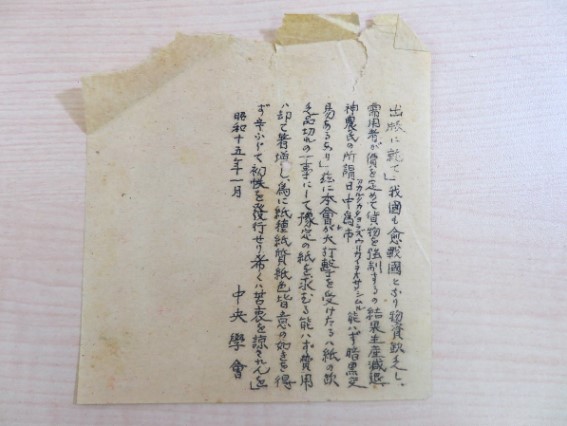 出版に就て」我國も愈戰國となり物資欠乏し、
需用者が價を定めて貨物を強制するの結果生産減退
神農氏の所謂日中爲市 能ハず暗黒交
易あるあり」茲に本會が大打擊を受けたるハ紙の欠
乏品切れの一事にして豫定の紙を求むる能ハず費用
ハ却て若増し、爲に紙種紙質紙色皆意の如きを得
ず辛ふじて初帙を發行せり希くハ苦衷を諒せられんを」
昭和十五年一月
中央學會